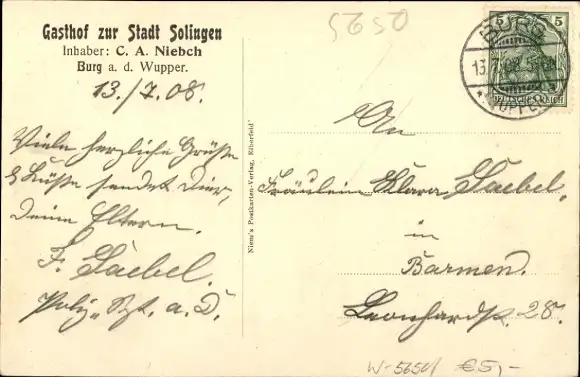 Gasthof zur Stadt Solingen
Inhaber: C. A. Niebch
Burg a. d. Wupper.
13./7.08.
Viele herzliche Grüße
& Küsse sendet Dir,
Deine Eltern.
F. Saebel.
Poliz. Sgt. a. D.
Niem's Postkarten-Verlag, Elberfeld
5650
5 5
DEUTSCHES REICH
BURG
13.7.08
(WUPPER)
An
Fräulein Klara Saebel,
in
Barmen.
Leonhardstr. 28.
W-5650/ €5,-